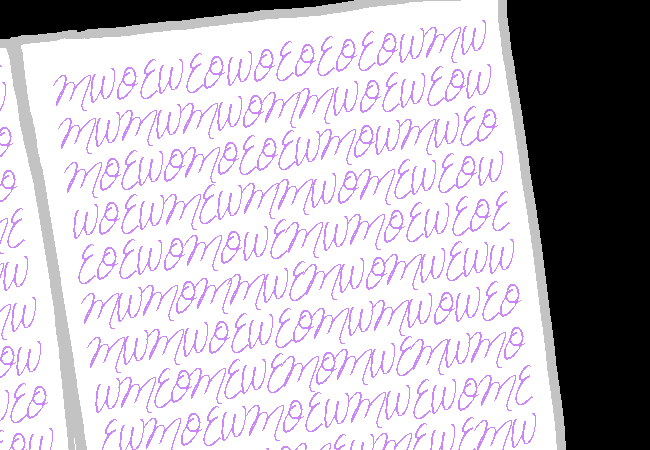 MWOEWEOWOEOEOEOWMW
MWMWMWOMMWOEWEOW
MOEWOMOEOEWMOWMWEO
WOEWMEWMMWOMEWEOW
EOEWOMOWEMWMOEWEOE
MWMOMMWEMWOMWEWW
MWMWOEWEOMWMWOWEO
WMEOMEWEMOMWEMWMO
EWMOEWMOEWMWEWOME